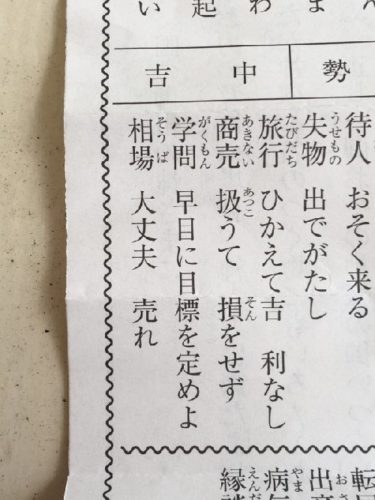 ん
ま
わ
起
い
勢
中吉
待人 おそく来る
うせもの
失物 出でがたし
たびだち
旅行 ひかえて吉 利なし
あきない あつこ そん
商売 扱うて 損をせず
がくもん
学問 早日に目標を定めよ
そうば
相場 大丈夫 売れ
転
出
やま
病
えん
縁